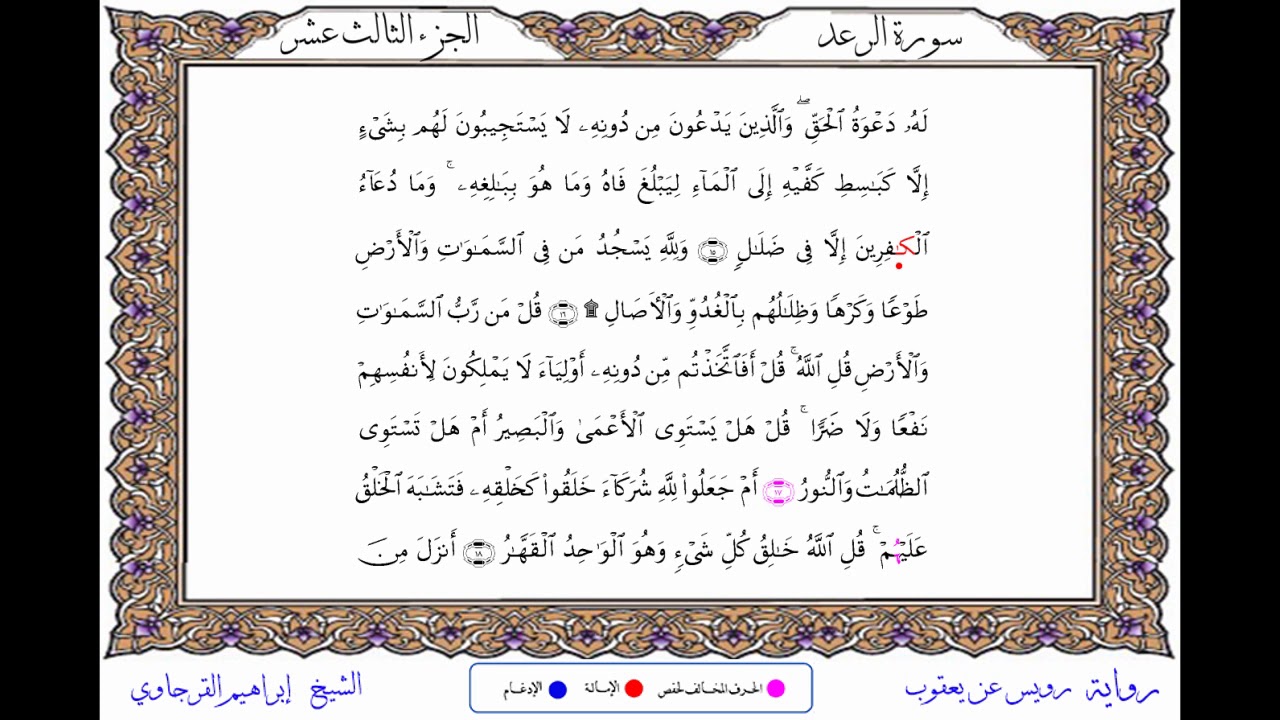 سورة الرعد
الجزء الثالث عشر
لَهُۥ دَعۡوَةُ ٱلۡحَقِّۖ وَٱلَّذِينَ يَدۡعُونَ مِن دُونِهِۦ لَا يَسۡتَجِيبُونَ لَهُم بِشَيۡءٍ
إِلَّا كَبَـٰسِطِ كَفَّيۡهِ إِلَى ٱلۡمَآءِ لِيَبۡلُغَ فَاهُ وَمَا هُوَ بِبَـٰلِغِهِۦۚ وَمَا دُعَآءُ
ٱلۡكَـٰفِرِينَ إِلَّا فِي ضَلَـٰلٖ ١٥ وَلِلَّهِ يَسۡجُدُ مَن فِي ٱلسَّمَـٰوَٰتِ وَٱلۡأَرۡضِ
طَوۡعٗا وَكَرۡهٗا وَظِلَـٰلُهُم بِٱلۡغُدُوِّ وَٱلۡأٓصَالِ ۩ ١٦ قُلۡ مَن رَّبُّ ٱلسَّمَـٰوَٰتِ
وَٱلۡأَرۡضِ قُلِ ٱللَّهُۚ قُلۡ أَفَٱتَّخَذۡتُم مِّن دُونِهِۦٓ أَوۡلِيَآءَ لَا يَمۡلِكُونَ لِأَنفُسِهِمۡ
نَفۡعٗا وَلَا ضَرّٗاۚ قُلۡ هَلۡ يَسۡتَوِي ٱلۡأَعۡمَىٰ وَٱلۡبَصِيرُ أَمۡ هَلۡ تَسۡتَوِي
ٱلظُّلُمَـٰتُ وَٱلنُّورُ ١٧ أَمۡ جَعَلُواْ لِلَّهِ شُرَكَآءَ خَلَقُواْ كَخَلۡقِهِۦ فَتَشَـٰبَهَ ٱلۡخَلۡقُ
عَلَيۡهُمۡۚ قُلِ ٱللَّهُ خَـٰلِقُ كُلِّ شَيۡءٖ وَهُوَ ٱلۡوَٰحِدُ ٱلۡقَهَّـٰرُ ١٨ أَنزَلَ مِنَ
رواية رويس عن يعقوب
الحرف المخالف لحفص الإمالة الإدغام
الشيخ إبراهيم القرجاوي